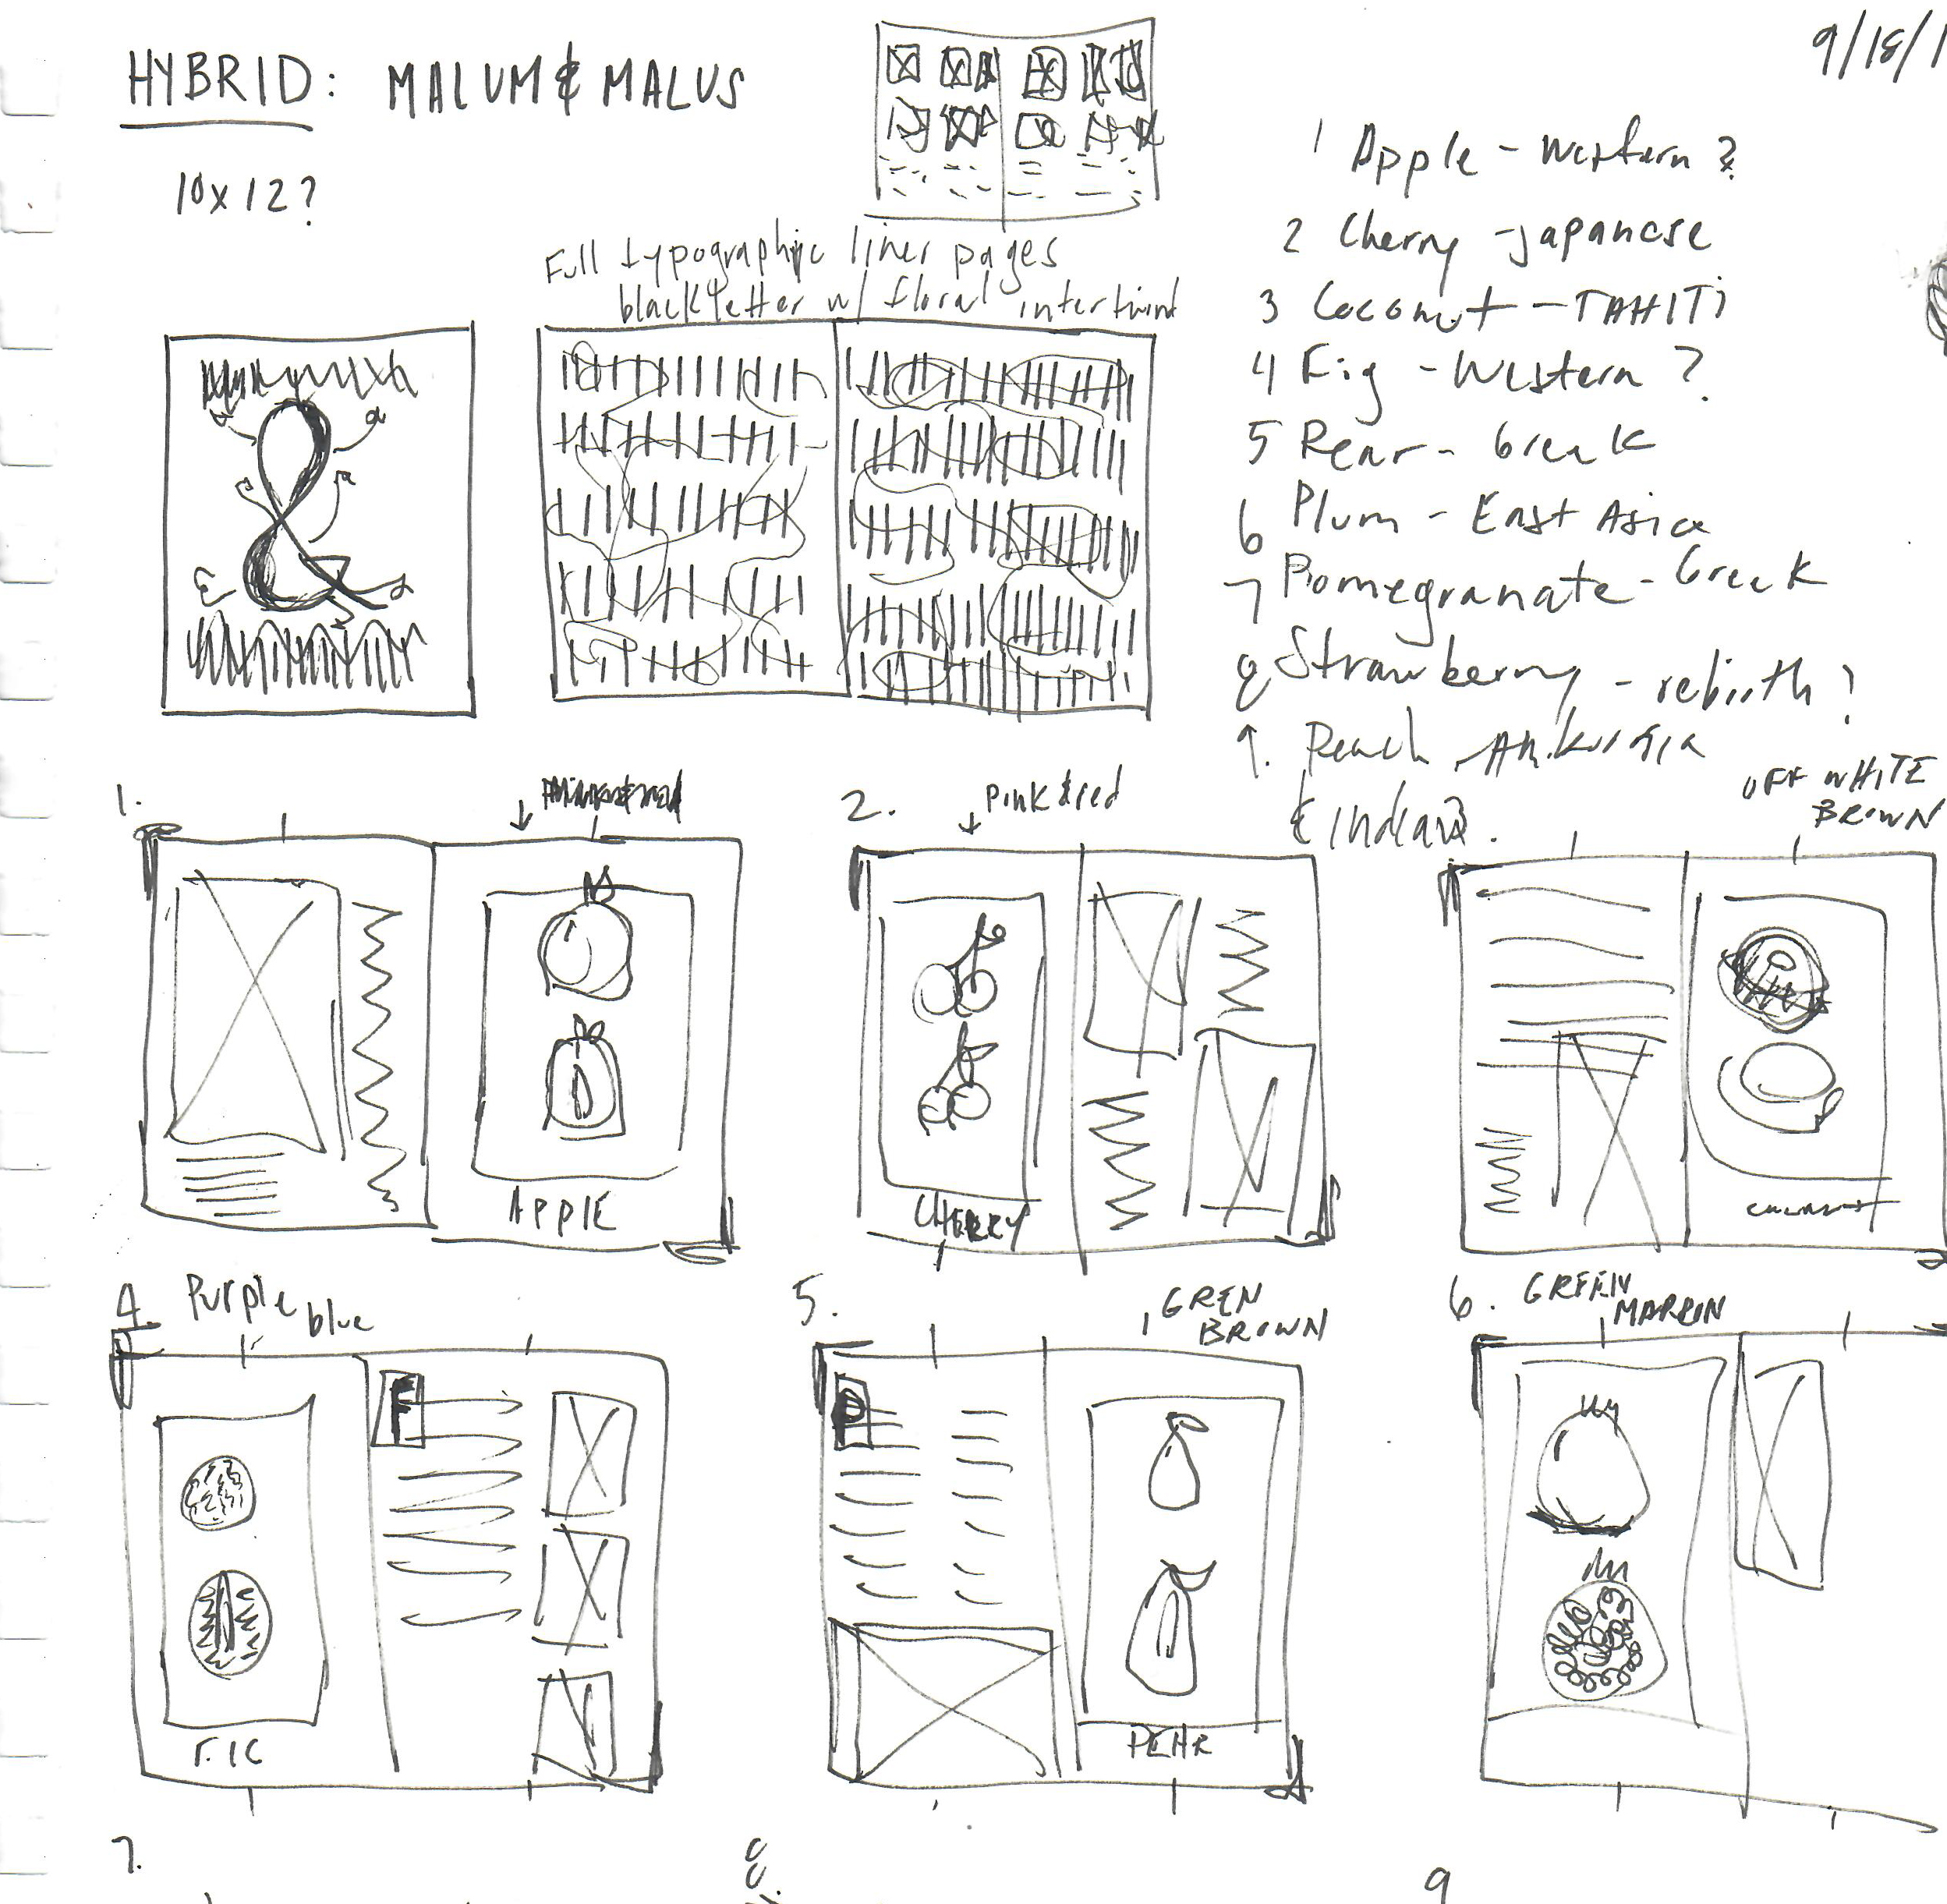 HYBRID: MALUM & MALUS
9/18/1
10x12?
Full typographic liner pages
blackletter w/ floral intertwind
1 Apple - Western ?
2 Cherry - Japanese
3 Coconut - TAHITI
4 Fig - Western ?
5 Pear - Greek
6 Plum - East Asia
7 Pomegranate - Greek
8 Strawberry - rebirth ?
9. Peach
& Indian?.
1.
APPLE
2. Pink & red
CHERRY
OFF WHITE
BROWN
4. Purple
blue
F
FIG
5. GREN
BROWN
P
PEAR
6. GREEN
MAROON
7.
8
9